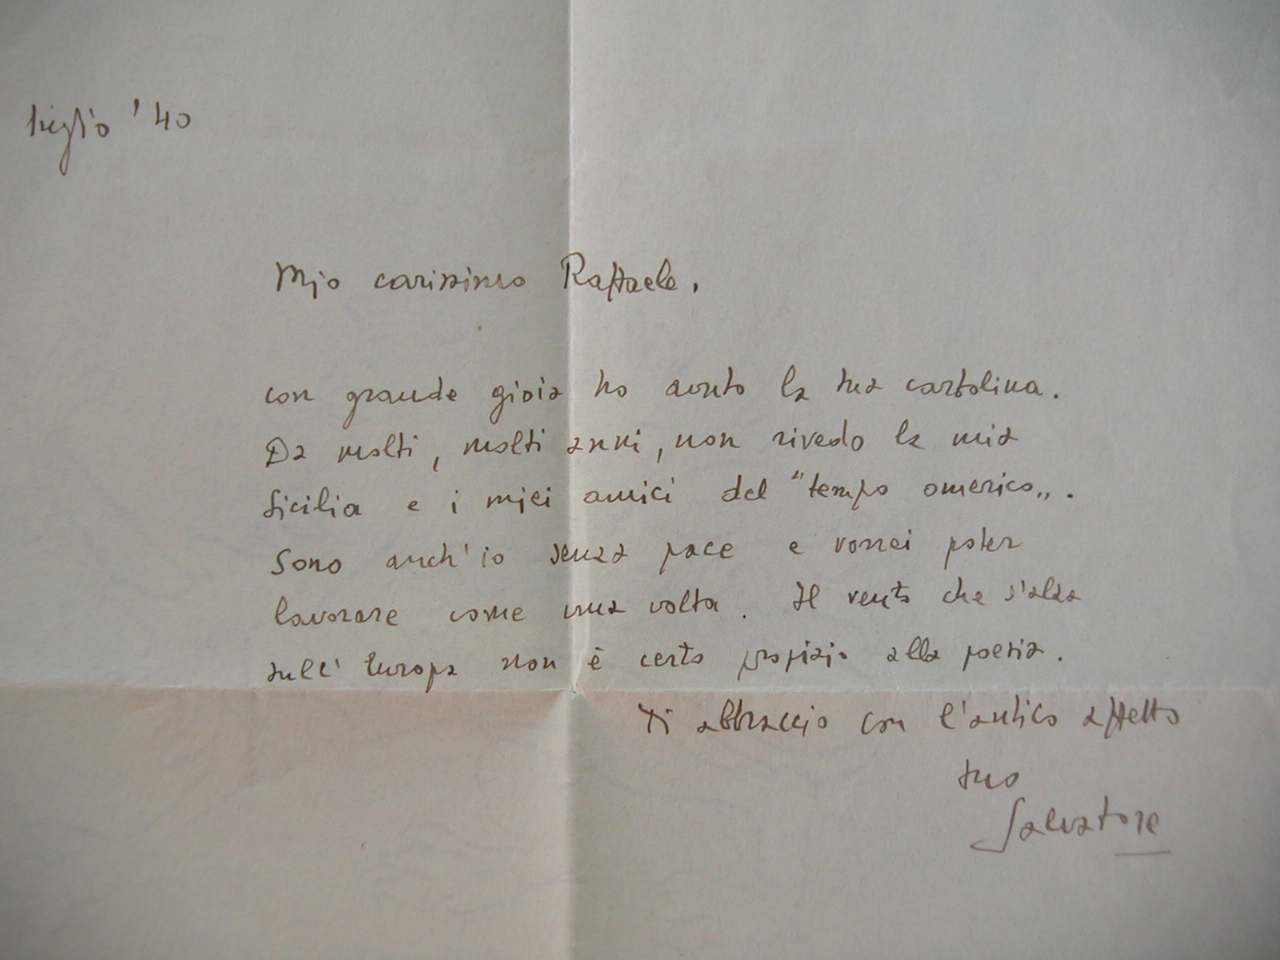 luglio '40
Mio carissimo Raffaele,
con grande gioia ho avuto la tua cartolina.
Da molti, molti anni, non rivedo la mia
Sicilia e i miei amici del "tempo omerico".
Sono anch'io senza pace e vorrei poter
lavorare come una volta. Il vento che s'alza
sull'Europa non è certo propizio alla poesia.
Ti abbraccio con l'antico affetto
tuo
Salvatore